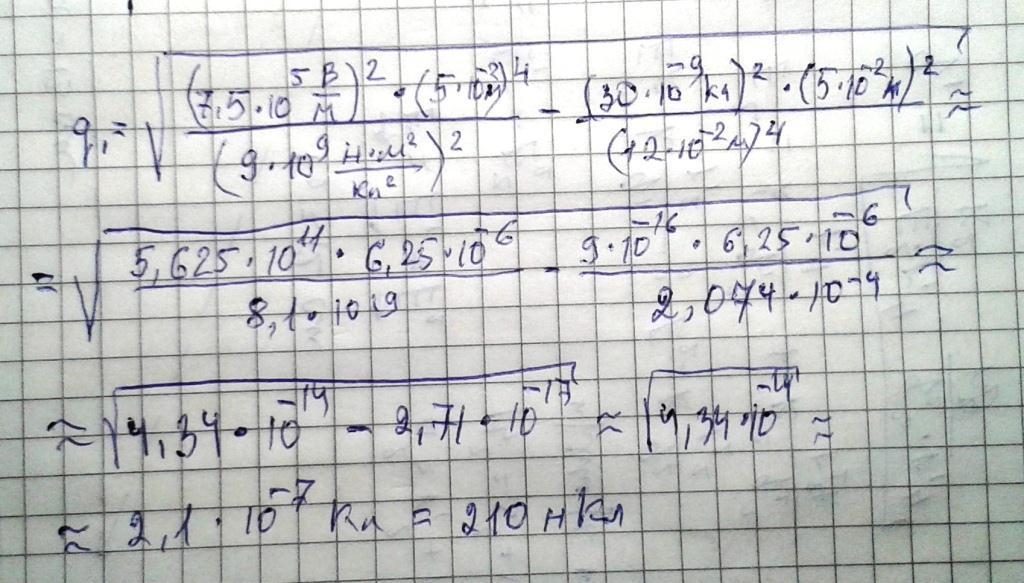 q₁ = √((7,5·10⁵ В/м)² · (5·10⁻²м)⁴ / (9·10⁹ Н·м²/Кл²)² − (30·10⁻⁹Кл)² · (5·10⁻²м)² / (12·10⁻²м)⁴) ≈
= √(5,625·10¹¹ · 6,25·10⁻⁶ / 8,1·10¹⁹ − 9·10⁻¹⁶ · 6,25·10⁻⁶ / 2,074·10⁻⁴) ≈
≈ √(4,34·10⁻¹⁴ − 2,71·10⁻¹⁷) ≈ √(4,34·10⁻¹⁴) ≈
≈ 2,1·10⁻⁷ Кл = 210 нКл